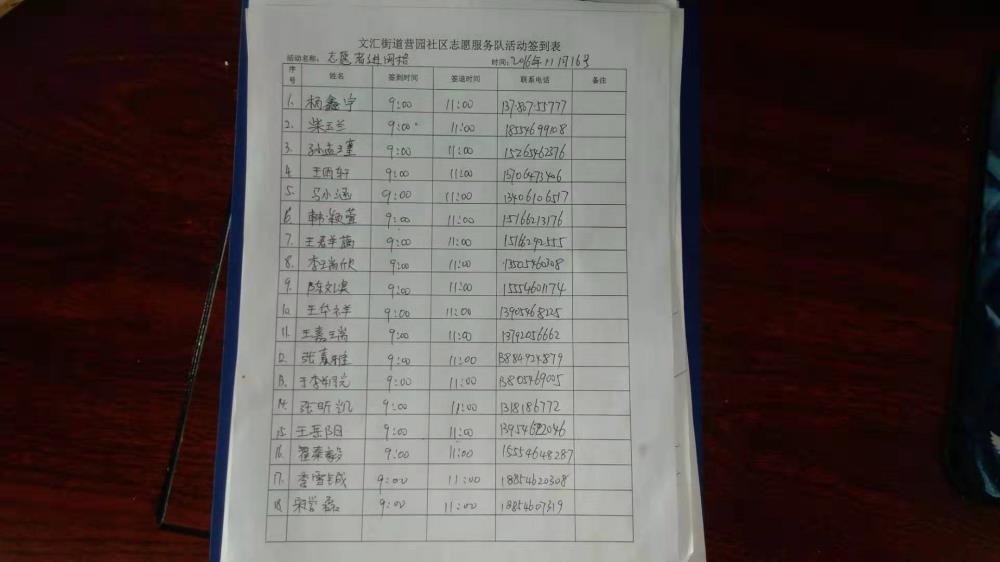 文汇街道营园社区志愿服务队活动签到表
活动名称：志愿者进网格 时间：2016年11月16号
序号 姓名 签到时间 签退时间 联系电话 备注
1. 杨鑫宇 9:00 11:00 13780755777
2. 柴玉兰 9:00 11:00 18554699108
3. 孙孟瑾 9:00 11:00 15265462376
4. 王雨轩 9:00 11:00 15706473406
5. 马小涵 9:00 11:00 13406106517
6. 韩颖萱 9:00 11:00 15166213176
7. 王君 9:00 11:00 15166292555
8. 李瑞欣 9:00 11:00 13505460308
9. 陈文淇 9:00 11:00 15554601174
10. 王华祥 9:00 11:00 13905468225
11. 王嘉瑞 9:00 11:00 13792056662
12. 张嘉雅 9:00 11:00 13884924879
13. 9:00 11:00 13805469005
14. 张昕凯 9:00 11:00 1318186772
15. 王岳阳 9:00 11:00 13954622046
16. 翟秦毅 9:00 11:00 15554648287
17. 李雪成 9:00 11:00 18854620308
18. 宋学磊 9:00 11:00 18854607319